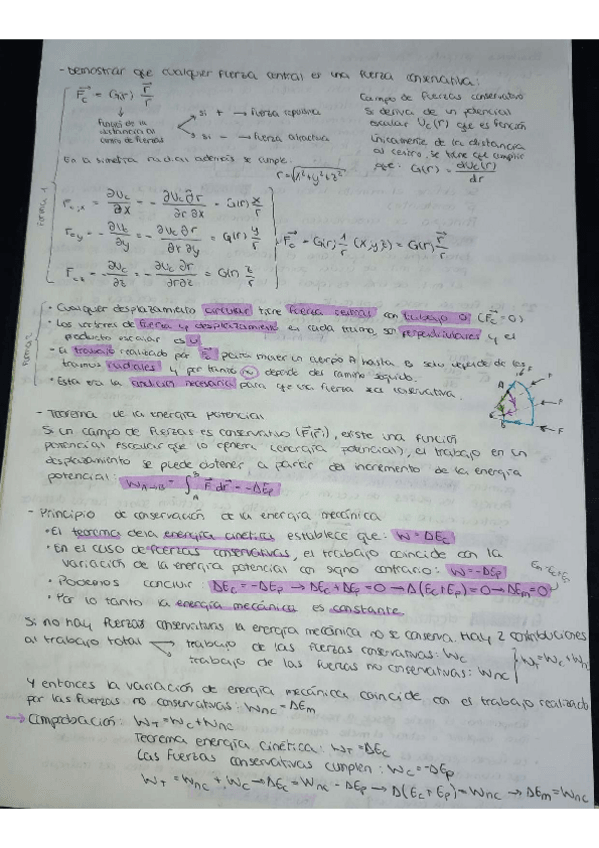 - Demostrar que cualquier fuerza central es una fuerza conservativa:
F⃗c = G(r) r⃗/r
función de la distancia al centro de fuerzas
si + → fuerza repulsiva
si - → fuerza atractiva
Campo de fuerzas conservativo
Si deriva de un potencial
escalar Uc(r) que es función
únicamente de la distancia
al centro, se tiene que cumplir
que: G(r) = dUc(r)/dr
En la simetría radial además se cumple:
r = √x²+y²+z²
Forma 1
Fc,x = ∂Uc/∂x = - ∂Uc ∂r/∂r ∂x = G(r) x/r
Fc,y = - ∂Uc/∂y = - ∂Uc ∂r/∂r ∂y = G(r) y/r
Fc,z = - ∂Uc/∂z = - ∂Uc ∂r/∂r ∂z = G(r) z/r
F⃗c = G(r) 1/r (x,y,z) = G(r) r⃗/r
Forma 2
• Cualquier desplazamiento circular tiene fuerza central con trabajo 0 (F⃗c=0)
• Los vectores de fuerza y desplazamiento en cada tramo, son perpendiculares y el
producto escalar es 0
• El trabajo realizado por F⃗c para mover un cuerpo A hasta B solo depende de los
tramos radiales y por tanto no depende del camino seguido.
• Esta era la condición necesaria para que una fuerza sea conservativa.
A
F
F
F
- Teorema de la energía potencial
Si un campo de fuerzas es conservativo (F⃗(r⃗)), existe una función
potencial escalar que lo genera (energía potencial), el trabajo en un
desplazamiento se puede obtener a partir del incremento de la energía
potencial: W A→B = ∫ₐᴮ F⃗ dr⃗ = -ΔEp
- Principio de conservación de la energía mecánica
• El teorema de la energía cinética establece que: W = ΔEc
• En el caso de fuerzas conservativas, el trabajo coincide con la
variación de la energía potencial con signo contrario: W = -ΔEp
Em = Ec+Ep
• Podemos concluir: ΔEc = -ΔEp → ΔEc + ΔEp = 0 → Δ(Ec+Ep) = 0 → ΔEm = 0
• Por lo tanto la energía mecánica es constante
Si no hay fuerzas conservativas la energía mecánica no se conserva. Hay 2 contribuciones
al trabajo total
trabajo de las fuerzas conservativas: Wc
trabajo de las fuerzas no conservativas: Wnc
Wt = Wc + Wnc
Y entonces la variación de energía mecánica coincide con el trabajo realizado
por las fuerzas no conservativas: Wnc = ΔEm
→ Comprobación: WT = Wc + Wnc
Teorema energía cinética: WT = ΔEc
Las fuerzas conservativas cumplen: Wc = -ΔEp
WT = Wnc + Wc → ΔEc = Wnc - ΔEp → Δ(Ec+Ep) = Wnc → ΔEm = Wnc